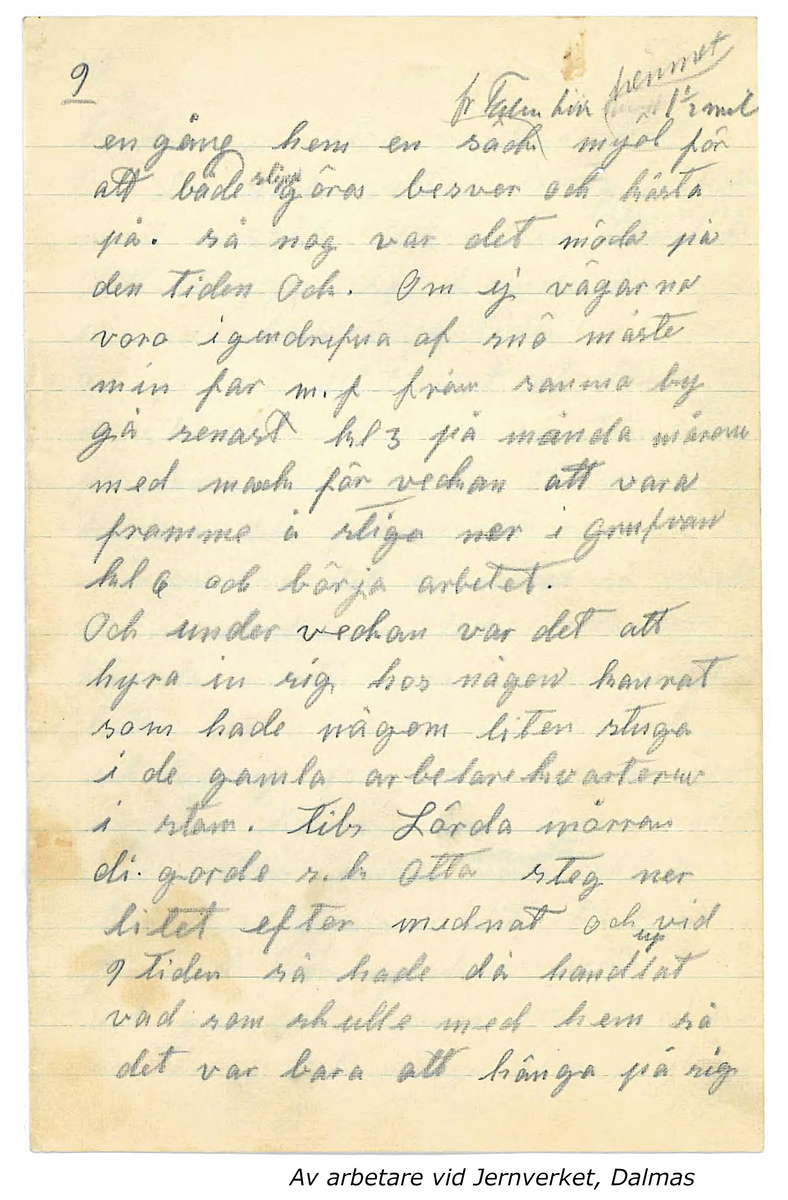 9
hemmet
fr Falun hit 1 1/2 mil
en gång hem en säck mjöl för
att både slippa göras besver och kosta
på. så nog var det möda på
den tiden Och. Om ej vägarna
voro igendrefna af snö måste
min far m.f från samma by
gå senast kl 3 på månda måron
med mack för veckan att vara
framme å stiga ner i grufvan
kl 6 och börja arbetet.
Och under veckan var det att
hyra in sig hos någon kamrat
som hade någom liten stuga
i de gamla arbetarekvarteren
i stam. tils Lörda mörran
di. gorde s.k Otta steg ner
litet efter mednat och vid
9 tiden så hade då handlat up
vad som skulle med hem så
det var bara att hänga på sig
Av arbetare vid Jernverket, Dalmas